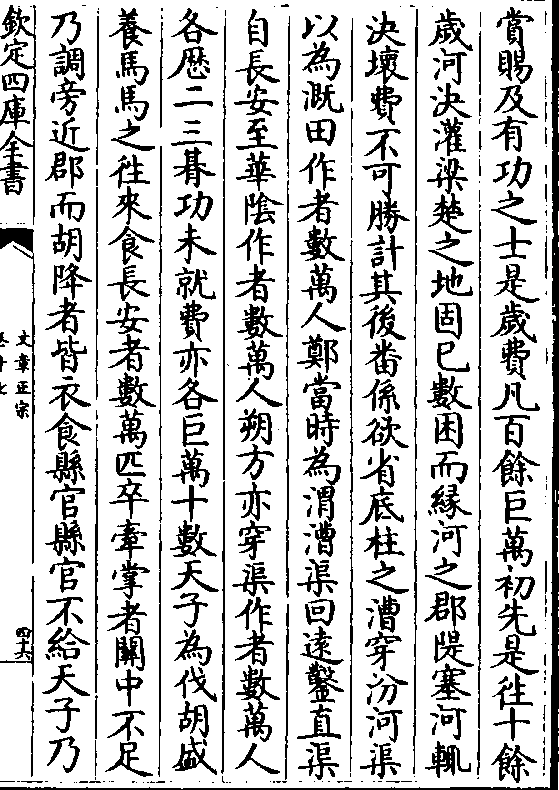 賞賜及有功之士是歲費凡百餘巨萬初先是徃十餘
歲河決灌梁楚之地固已數困而縁河之郡隄塞河輒
決壞費不可勝計其後番係欲省底柱之漕穿汾河渠
以為溉田作者數萬人鄭當時為渭漕渠回逺鑿直渠
自長安至華陰作者數萬人朔方亦穿渠作者數萬人
各歴二三朞功未就費亦各巨萬十數天子為伐胡盛
養馬馬之徃來食長安者數萬匹卒牽掌者闗中不足
乃調旁近郡而胡降者皆衣食縣官縣官不給天子乃
欽定四庫全書
文章正宗
四十六